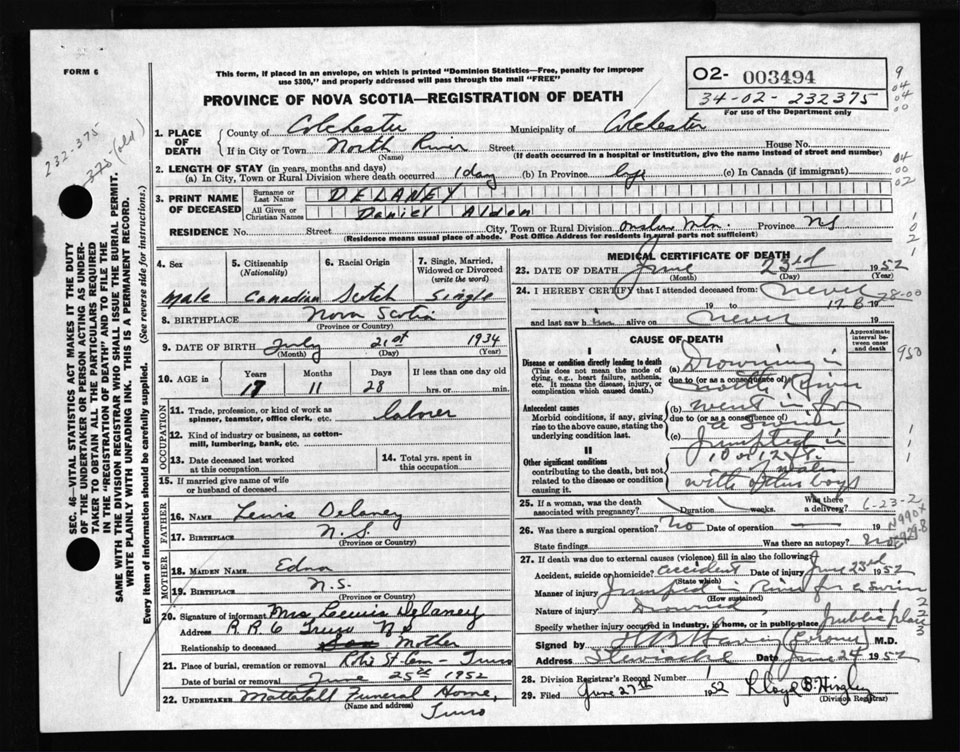 FORM 6
This form, if placed in an envelope, on which is printed "Dominion Statistics—Free, penalty for improper
use $300," and properly addressed will pass through the mail "FREE"
O2- 003494
34-02-232375
For use of the Department only
PROVINCE OF NOVA SCOTIA—REGISTRATION OF DEATH
232-375
(old)
9
04
04
00
04
00
02
1. PLACE OF DEATH
County of Colchester Municipality of Colchester
If in City or Town North River Street House No.
(Name) (If death occurred in a hospital or institution, give the name instead of street and number)
2. LENGTH OF STAY (in years, months and days)
(a) In City, Town or Rural Division where death occurred 1 day (b) In Province life (c) In Canada (if immigrant)
3. PRINT NAME OF DECEASED
Surname or Last Name DELANEY
All Given or Christian Names Daniel Alden
RESIDENCE No. Street City, Town or Rural Division Onslow Mtn. Province NS
(Residence means usual place of abode. Post Office Address for residents in rural parts not sufficient.)
4. Sex
Male
5. Citizenship
(Nationality)
Canadian
6. Racial Origin
Scotch
7. Single, Married,
Widowed or Divorced
(write the word)
Single
8. BIRTHPLACE Nova Scotia
(Province or Country)
9. DATE OF BIRTH July 21st 1934
(Month) (Day) (Year)
10. AGE in
Years Months Days If less than one day old
17 11 28 hrs. or min.
OCCUPATION
11. Trade, profession, or kind of work as
spinner, teamster, office clerk, etc. laborer
12. Kind of industry or business, as cotton-
mill, lumbering, bank, etc.
13. Date deceased last worked
at this occupation
14. Total yrs. spent in
this occupation
15. If married give name of wife
or husband of deceased
FATHER
16. NAME Lewis Delaney
17. BIRTHPLACE N.S.
(Province or Country)
MOTHER
18. MAIDEN NAME Edna
19. BIRTHPLACE N.S.
(Province or Country)
20. Signature of informant Mrs Lewis Delaney
Address R.R.6 Truro NS
Relationship to deceased Mother
21. Place of burial, cremation or removal Robie St Cem - Truro
Date of burial or removal June 25th 1952
22. UNDERTAKER Mattatall Funeral Home,
(Name and address) Truro
MEDICAL CERTIFICATE OF DEATH
23. DATE OF DEATH June 23rd 1952
(Month) (Day) (Year)
24. I HEREBY CERTIFY that I attended deceased from: never
19 to 19
and last saw him alive on never 19
CAUSE OF DEATH
Approximate
interval be-
tween onset
and death
I
Disease or condition directly leading to death
(This does not mean the mode of
dying, e.g., heart failure, asthenia,
etc. It means the disease, injury, or
complication which caused death.)
(a) Drowning in
due to (or as a consequence of)
North River
Antecedent causes
Morbid conditions, if any, giving
rise to the above cause, stating the
underlying condition last.
(b) went in for
due to (or as a consequence of)
a swim
(c) Jumped in
II
Other significant conditions
contributing to the death, but not
related to the disease or condition
causing it.
10 or 12 ft.
water
with other boys
25. If a woman, was the death
associated with pregnancy? Duration weeks. Was there
a delivery?
6-23-2
26. Was there a surgical operation? No Date of operation — 19
State findings Was there an autopsy? No
27. If death was due to external causes (violence) fill in also the following:
Accident, suicide or homicide? accident Date of injury June 23rd 1952
(State which)
Manner of injury Jumped in River for a swim
(How sustained)
Nature of injury Drowned
Specify whether injury occurred in industry, in home, or in public place public place
Signed by Coroner M.D.
Address Date June 24 1952
28. Division Registrar's Record Number 1
29. Filed June 27th 1952 Lloyd B. Hingley
(Division Registrar)
SEC. 46—VITAL STATISTICS ACT MAKES IT THE DUTY
OF THE UNDERTAKER OR PERSON ACTING AS UNDER-
TAKER TO OBTAIN ALL THE PARTICULARS REQUIRED
IN THE "REGISTRATION OF DEATH" AND TO FILE THE
SAME WITH THE DIVISION REGISTRAR WHO SHALL ISSUE THE BURIAL PERMIT.
WRITE PLAINLY WITH UNFADING INK. THIS IS A PERMANENT RECORD.
Every item of information should be carefully supplied. (See reverse side for instructions.)